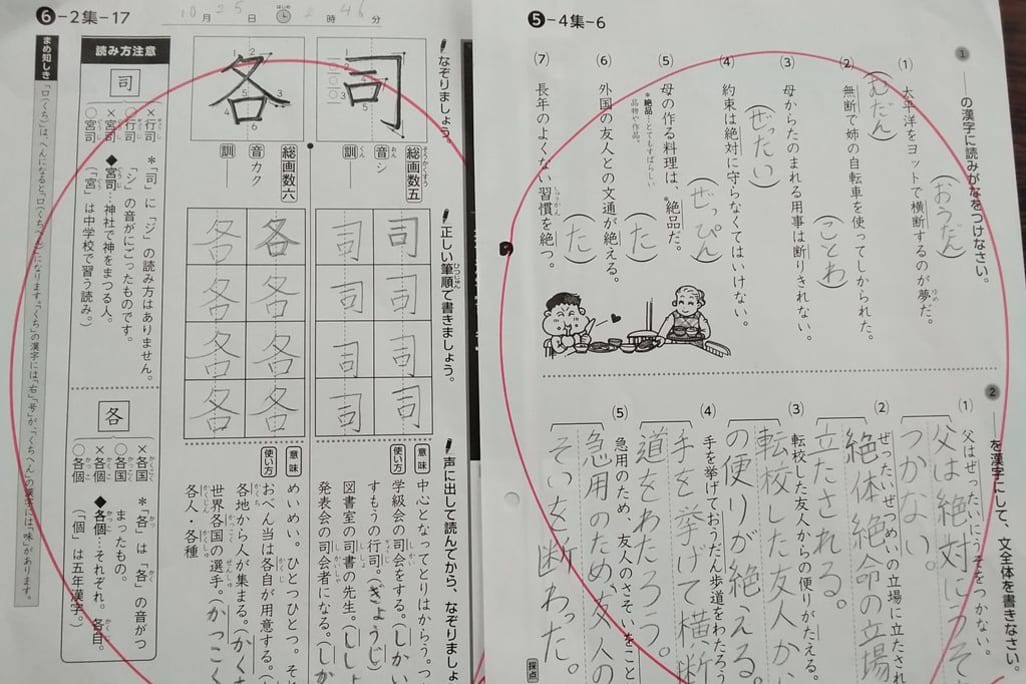 ⑤-4集-6
1 ――の漢字に読みがなをつけなさい。
(1) 太平洋をヨットで横断するのが夢だ。
ゆめ
(おうだん)
(2) 無断で姉の自転車を使ってしかられた。
(むだん)
(3) 母からたのまれる用事は断りきれない。
(ことわ)
(4) 約束は絶対に守らなくてはいけない。
(ぜったい)
(5) 母の作る料理は、*絶品だ。
*絶品=とてもすばらしい
品物や作品。
(ぜっぴん)
(6) 外国の友人との文通が絶える。
(た)
(7) 長年のよくない習慣を絶つ。
しゅうかん
(た)
2 ――を漢字にして、文全体を書きなさい。
(1) 父はぜったいにうそをつかない。
父は絶対にうそ
つかない。
(2) ぜったいぜつめいの立場に立たされ
絶体絶命の立場
立たされる。
(3) 転校した友人からの便りがたえる。
転校した友人か
の便りが絶える。
(4) 手を挙げておうだん歩道をわたろう
手を挙げて横断
道をわたろう。
(5) 急用のため、友人のさそいをこと
急用のため、友人の
そいを断わった。
採点
⑥-2集-17
10月25日 はじめ 2時46分
なぞりましょう。
司
総画数五
そうかくすう
音 シ
おん
訓 ――
くん
各
総画数六
音 カク
訓 ――
正しい筆順で書きましょう。
ひつじゅん
司 司 司 司
司 司 司 司
各 各 各 各
各 各 各 各
声に出して読んでから、なぞりましょ
意味 中心となってとりはからう。つ
使い方 学級会の司会をする。(しかい
すもうの行司。(ぎょうじ)
図書室の司書の先生。(ししょ
発表会の司会者になる。(しか
意味 めいめい。ひとつひとつ。そ
使い方 おべん当は各自が用意する。(
各地から人が集まる。(かく
世界各国の選手。(かっこく
各人・各種
読み方注意
司
×行司
○行司
×宮司
○宮司
*「司」に「ジ」の読み方はありません。
「シ」の音がにごったものです。
◆宮司…神社で神をまつる人。
(「宮」は中学校で習う読み。)
各
×各国
○各国
×各個
○各個
*「各」は「各」の音がつ
まったもの。
◆各個…それぞれ。各自。
(「個」は五年漢字。)
まめ知しき
「口(くち)」は、へんになると「口(くちへん)」になります。「くち」の漢字には「右」「号」が、「くちへん」の漢字には「味」があります。